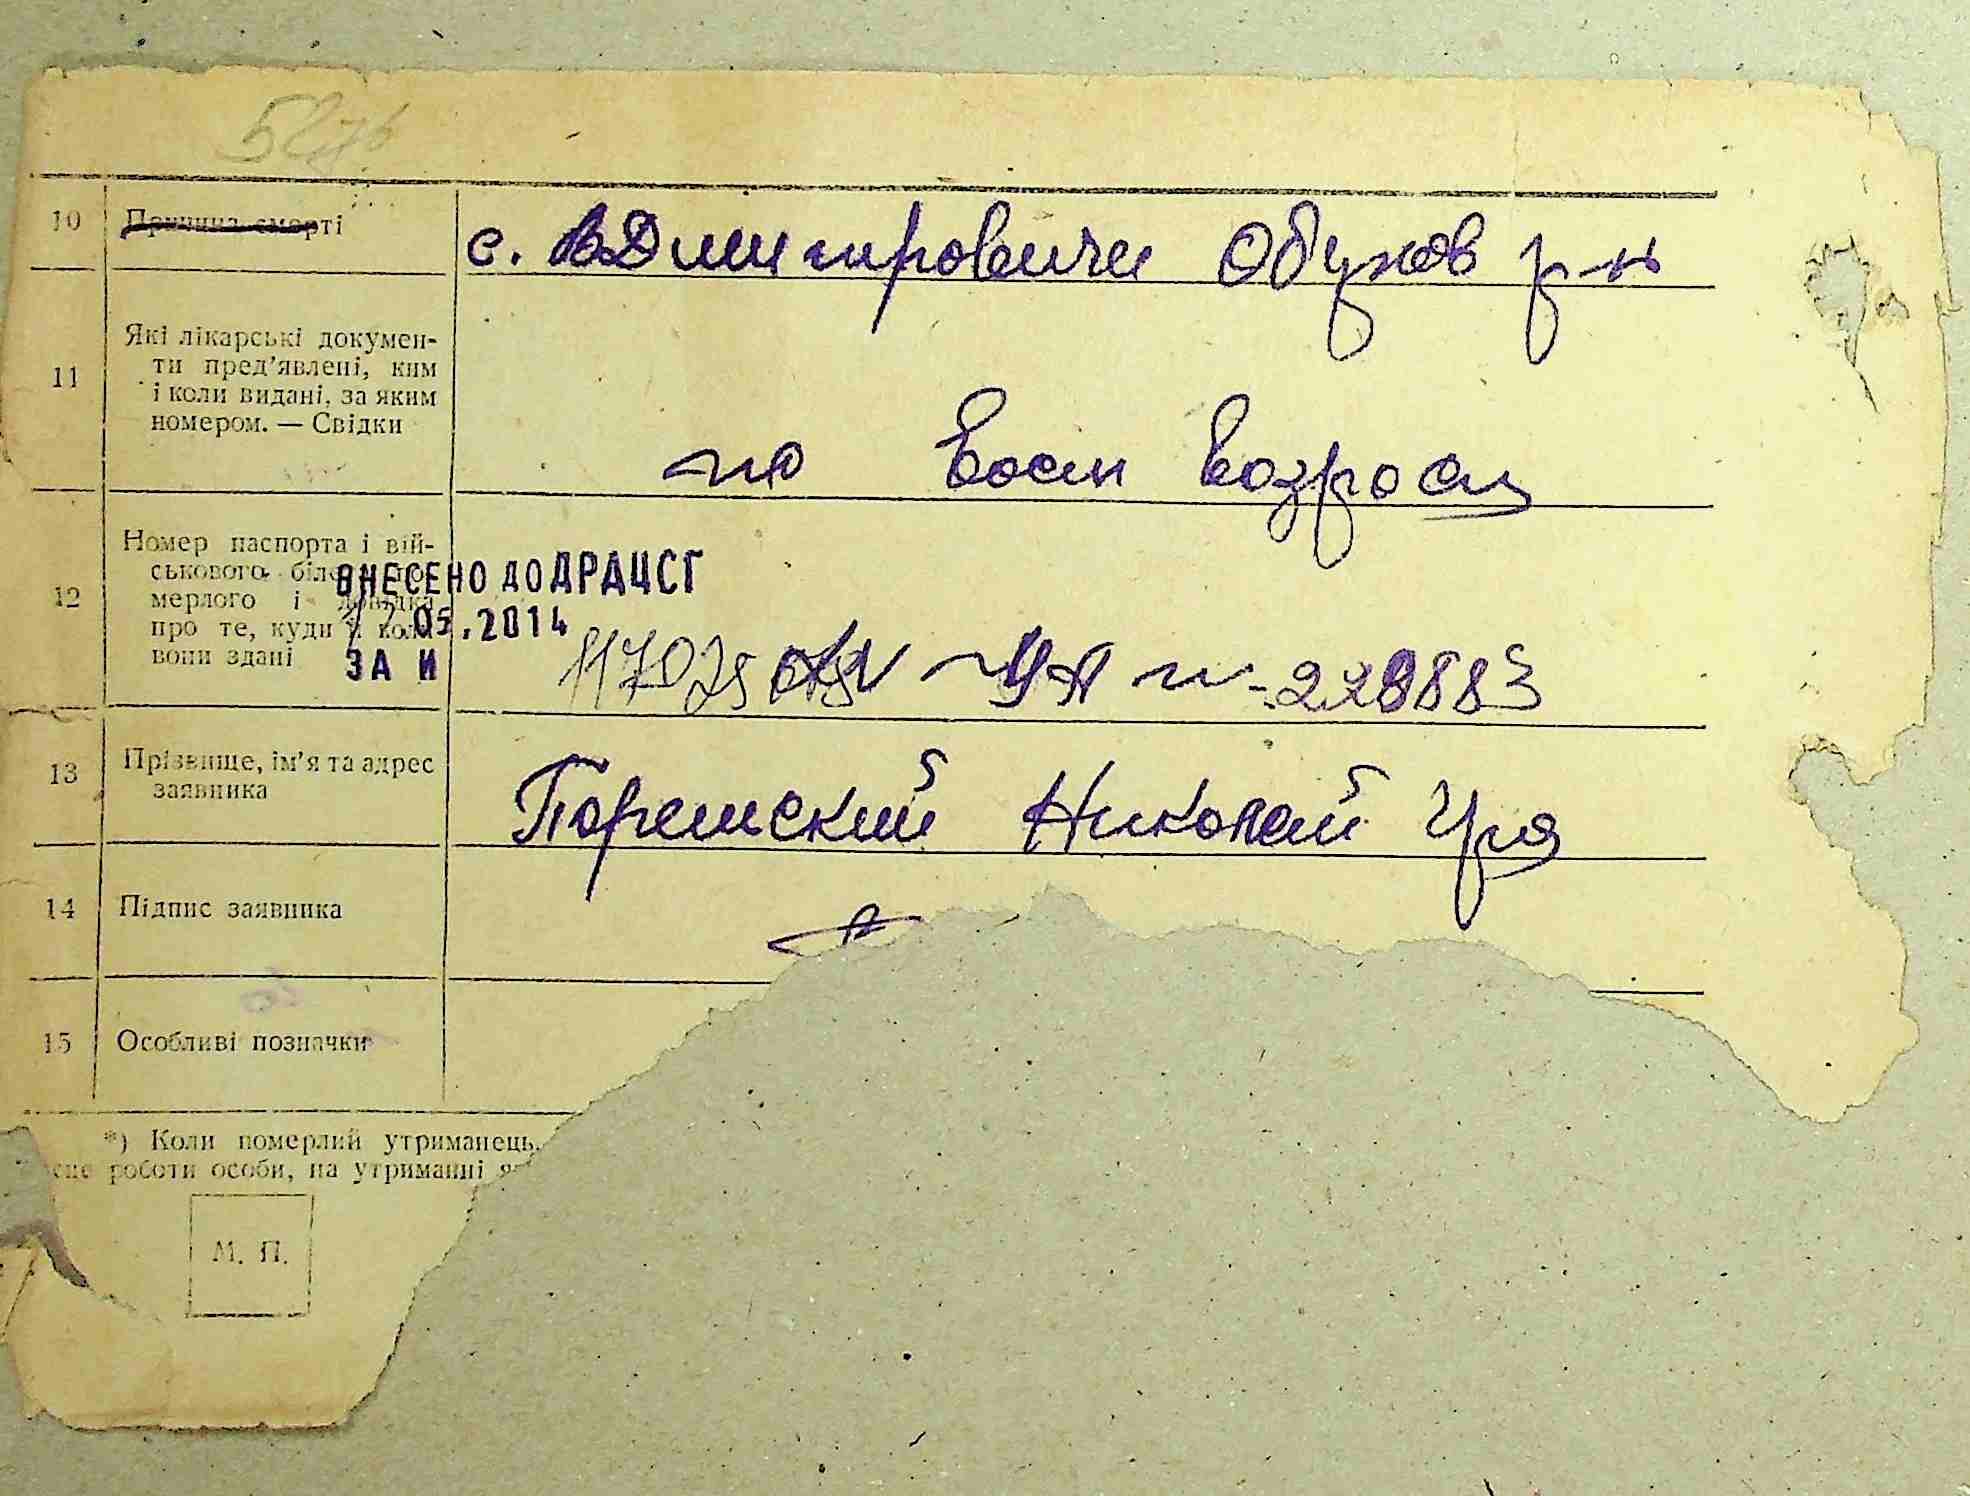 10
Причина смерті
с. ВДмитровичи Обухов р-н
11
Які лікарські докумен-
ти пред'явлені, ким
і коли видані, за яким
номером. — Свідки
по воен возрасту
12
Номер паспорта і вій-
ськового
мерлого і довідка
про те, куди й коли
вони здані
ВНЕСЕНО ДО ДРАЦСГ
05.2014
ЗА И
УА 228883
13
Прізвище, ім'я та адрес
заявника
Порешский Николай
14
Підпис заявника
15
Особливі позначки
*) Коли померлий утриманець,
роботи особи, на утриманні
М. П.